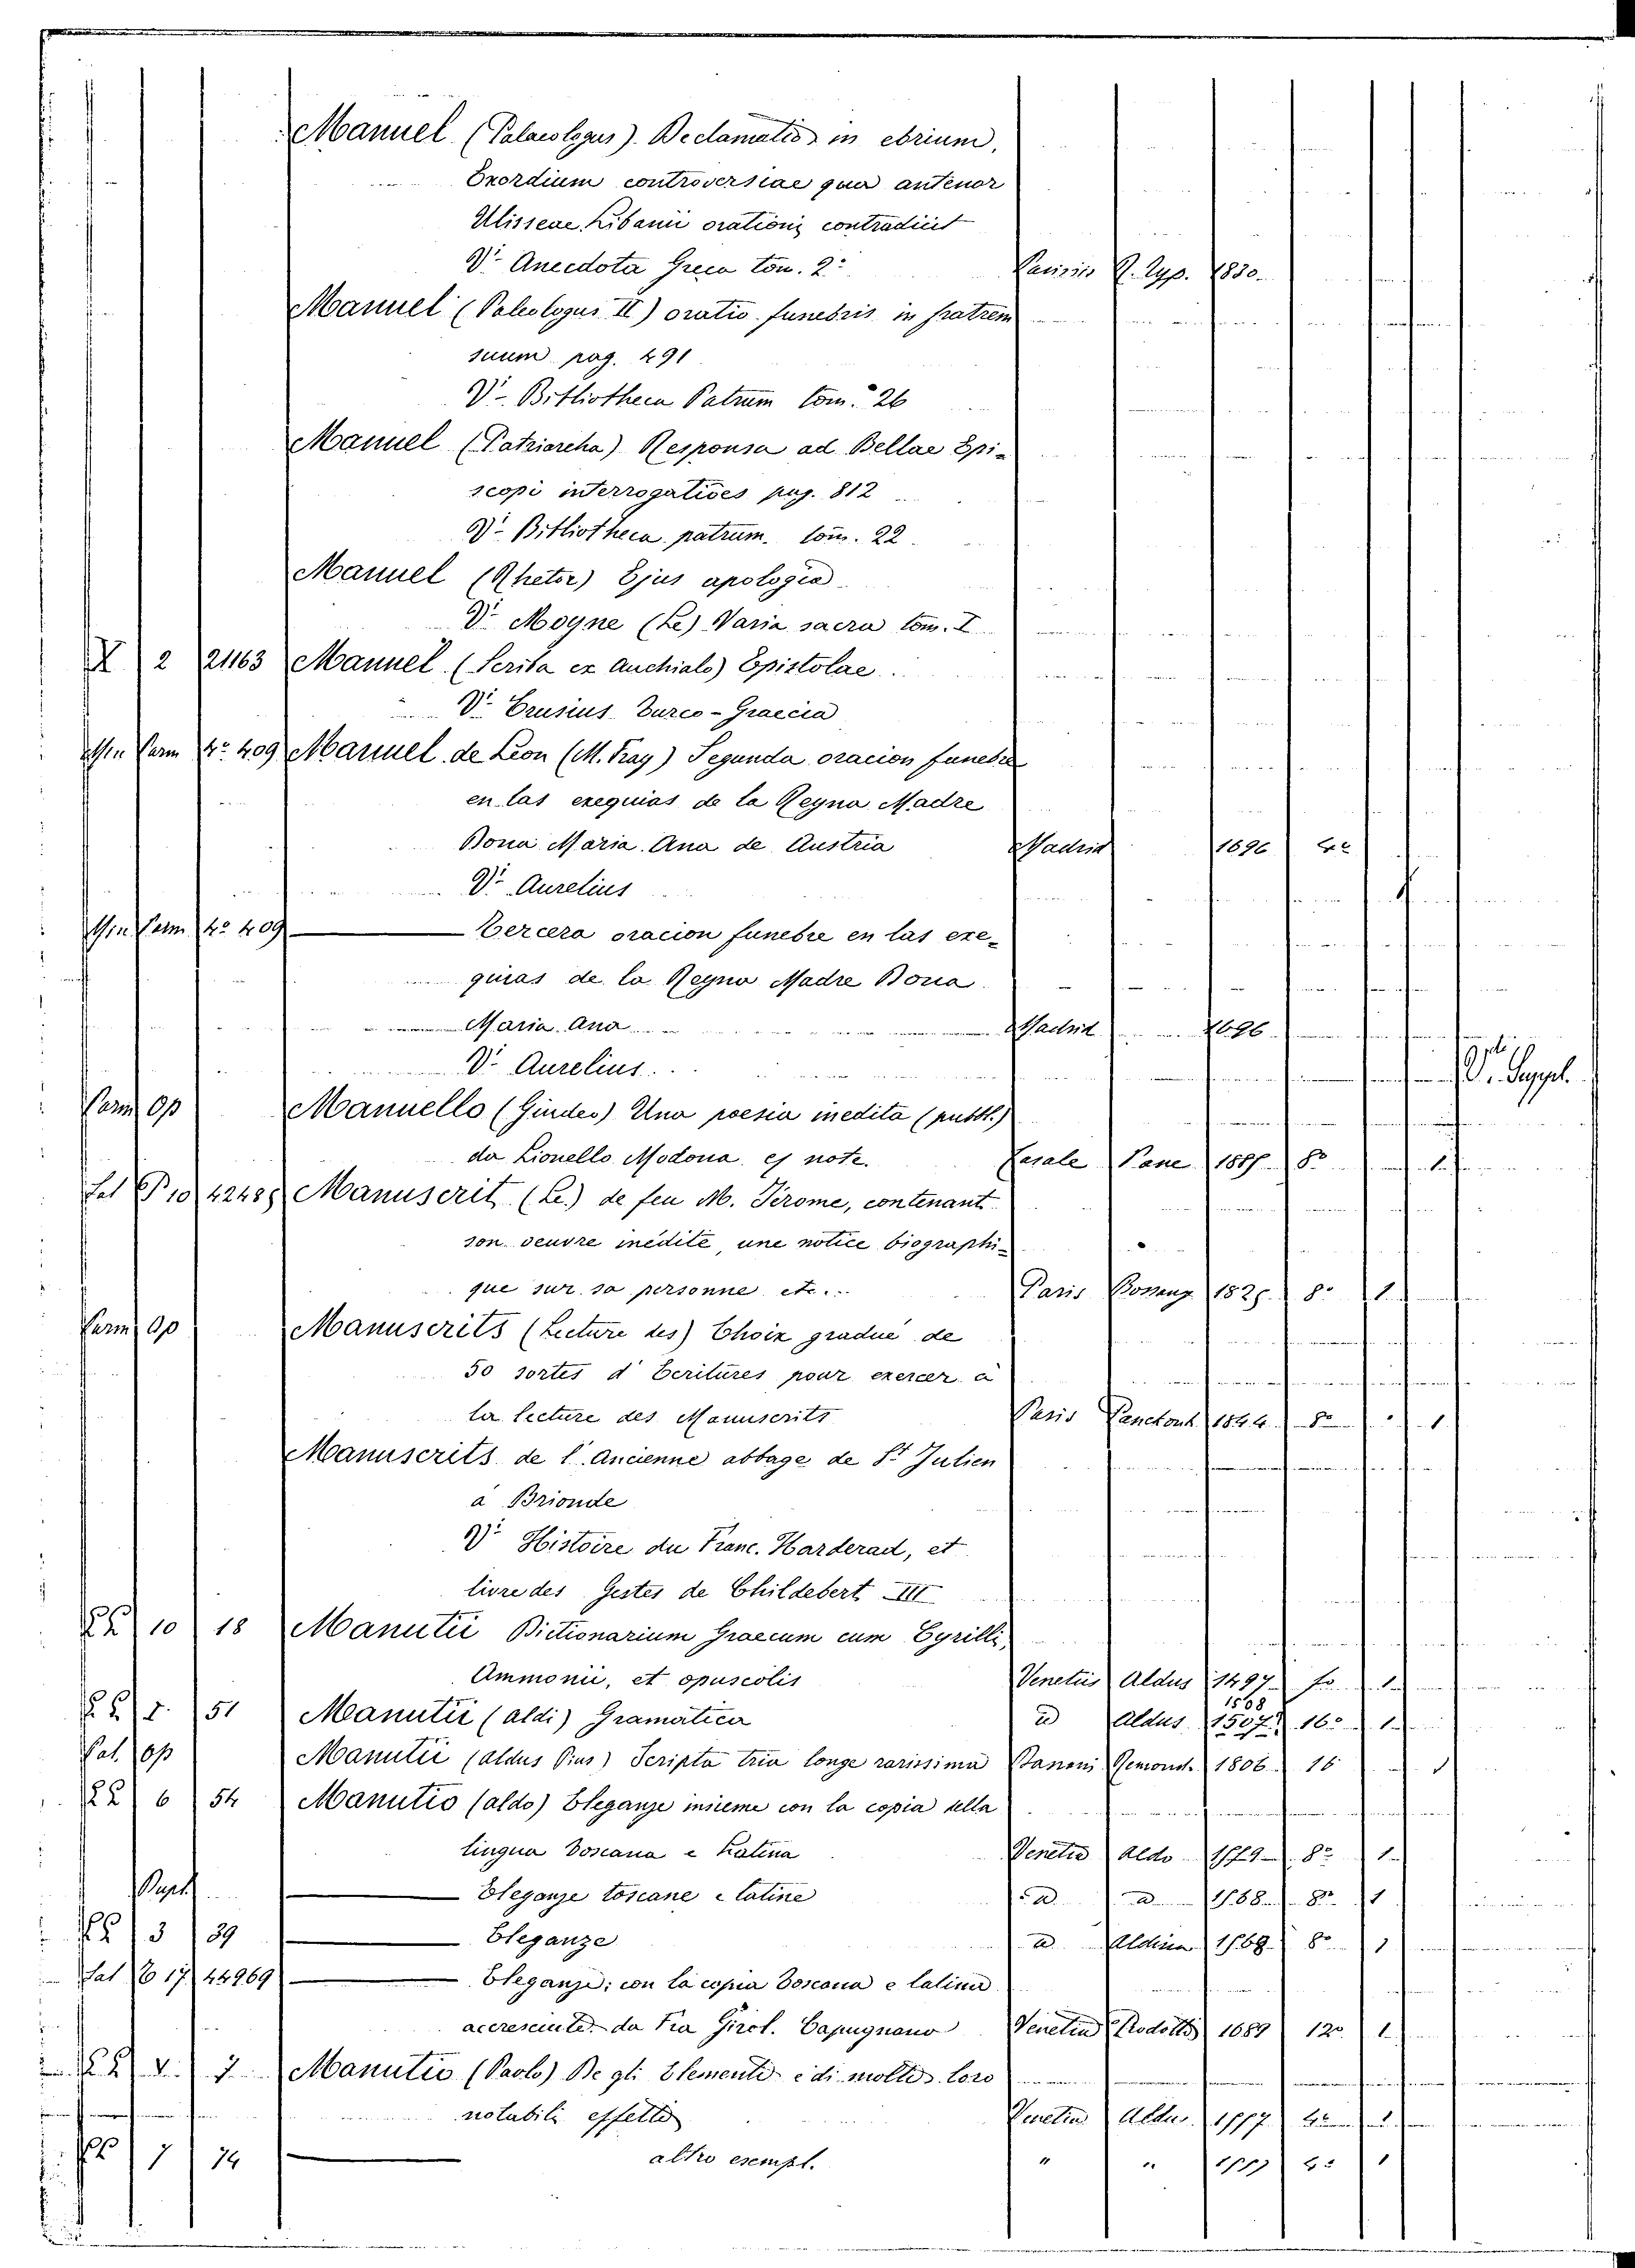 Manuel (Palaeologus). Declamatio in ebrium,
Exordium controversiae qua antenor
Ulisseae Libanii orationi contradicit
Vi Anecdota Greca tom. 2: Parisiis R. Typ. 1830.
Manuel (Paleologus II) oratio funebris in fratrem
suum pag. 491
Vi Bibliotheca Patrum tom. 26
Manuel (Patriarcha) Responsa ad Bellae Epi-
scopi interrogatioes pag. 812
Vi Bibliotheca patrum. tom. 22.
Manuel (Rhetor) Ejus apologia
Vi Moyne (Le) Varia sacra tom. I
X 2 21163 Manuel (Scriba ex Anchialo) Epistolae
Vi Crusius Turco-Graecia
Min Parm 4o 409 Manuel de Leon (M. Fray) Segunda oracion funebre
en las exequias de la Reyna Madre
Dona Maria Ana de Austria Madrid 1696 4o
Vi Aurelius 1
Min Parm 4o 409 — Tercera oracion funebre en las exe-
quias de la Reyna Madre Dona
Maria Ana Madrid 1696
Vi Aurelius Vi Suppl.
Parm Op Manuello (Giudeo) Una poesia inedita (pubbl.)
da Lionello Modona ej note. Casale Pane 8o 1
Sal B 10 42485 Manuscrit (Le) de feu M. Jerome, contenant
son oeuvre inedite, une notice biographi-
que sur sa personne etc... Paris 8o 1
Parm Op Manuscrits (Lecture des) Choix gradué de
50 sortes d'Ecritures pour exercer a
la lecture des Manuscrits Paris 1844 8o 1
Manuscrits de l'Ancienne abbage de St Julien
a Brionde
Vi Histoire du Franc. Harderad, et
livre des Gestes de Childebert III
10 18 Manutii Dictionarium Graecum cum Cyrilli,
Ammonii, et opuscolis Venetiis Aldus 1497 fo 1
51 Manutii (aldi) Gramatica id Aldus 1508 1507 16o 1
Pal. Op Manutii (aldus Pius) Scripta tria longe rarissima Banoni Remond. 1806 16 1
6 54 Manutio (aldo) Eleganze insieme con la copia della
lingua Toscana e Latina Venetia Aldo 8o 1
Suppl — Eleganze toscane e latine 8o 1
3 39 — Eleganze Aldina 8o 1
Sal B 17 44969 — Eleganze; con la copia Toscana e latina
accresciute da Fra Girol. Capugnano Venetia 1689 12o 1
7 Manutio (Paolo) De gli Elementi e di molti loro
notabili effetti Venetia Aldus 4o 1
7 74 — altro esempl. " " 4o 1